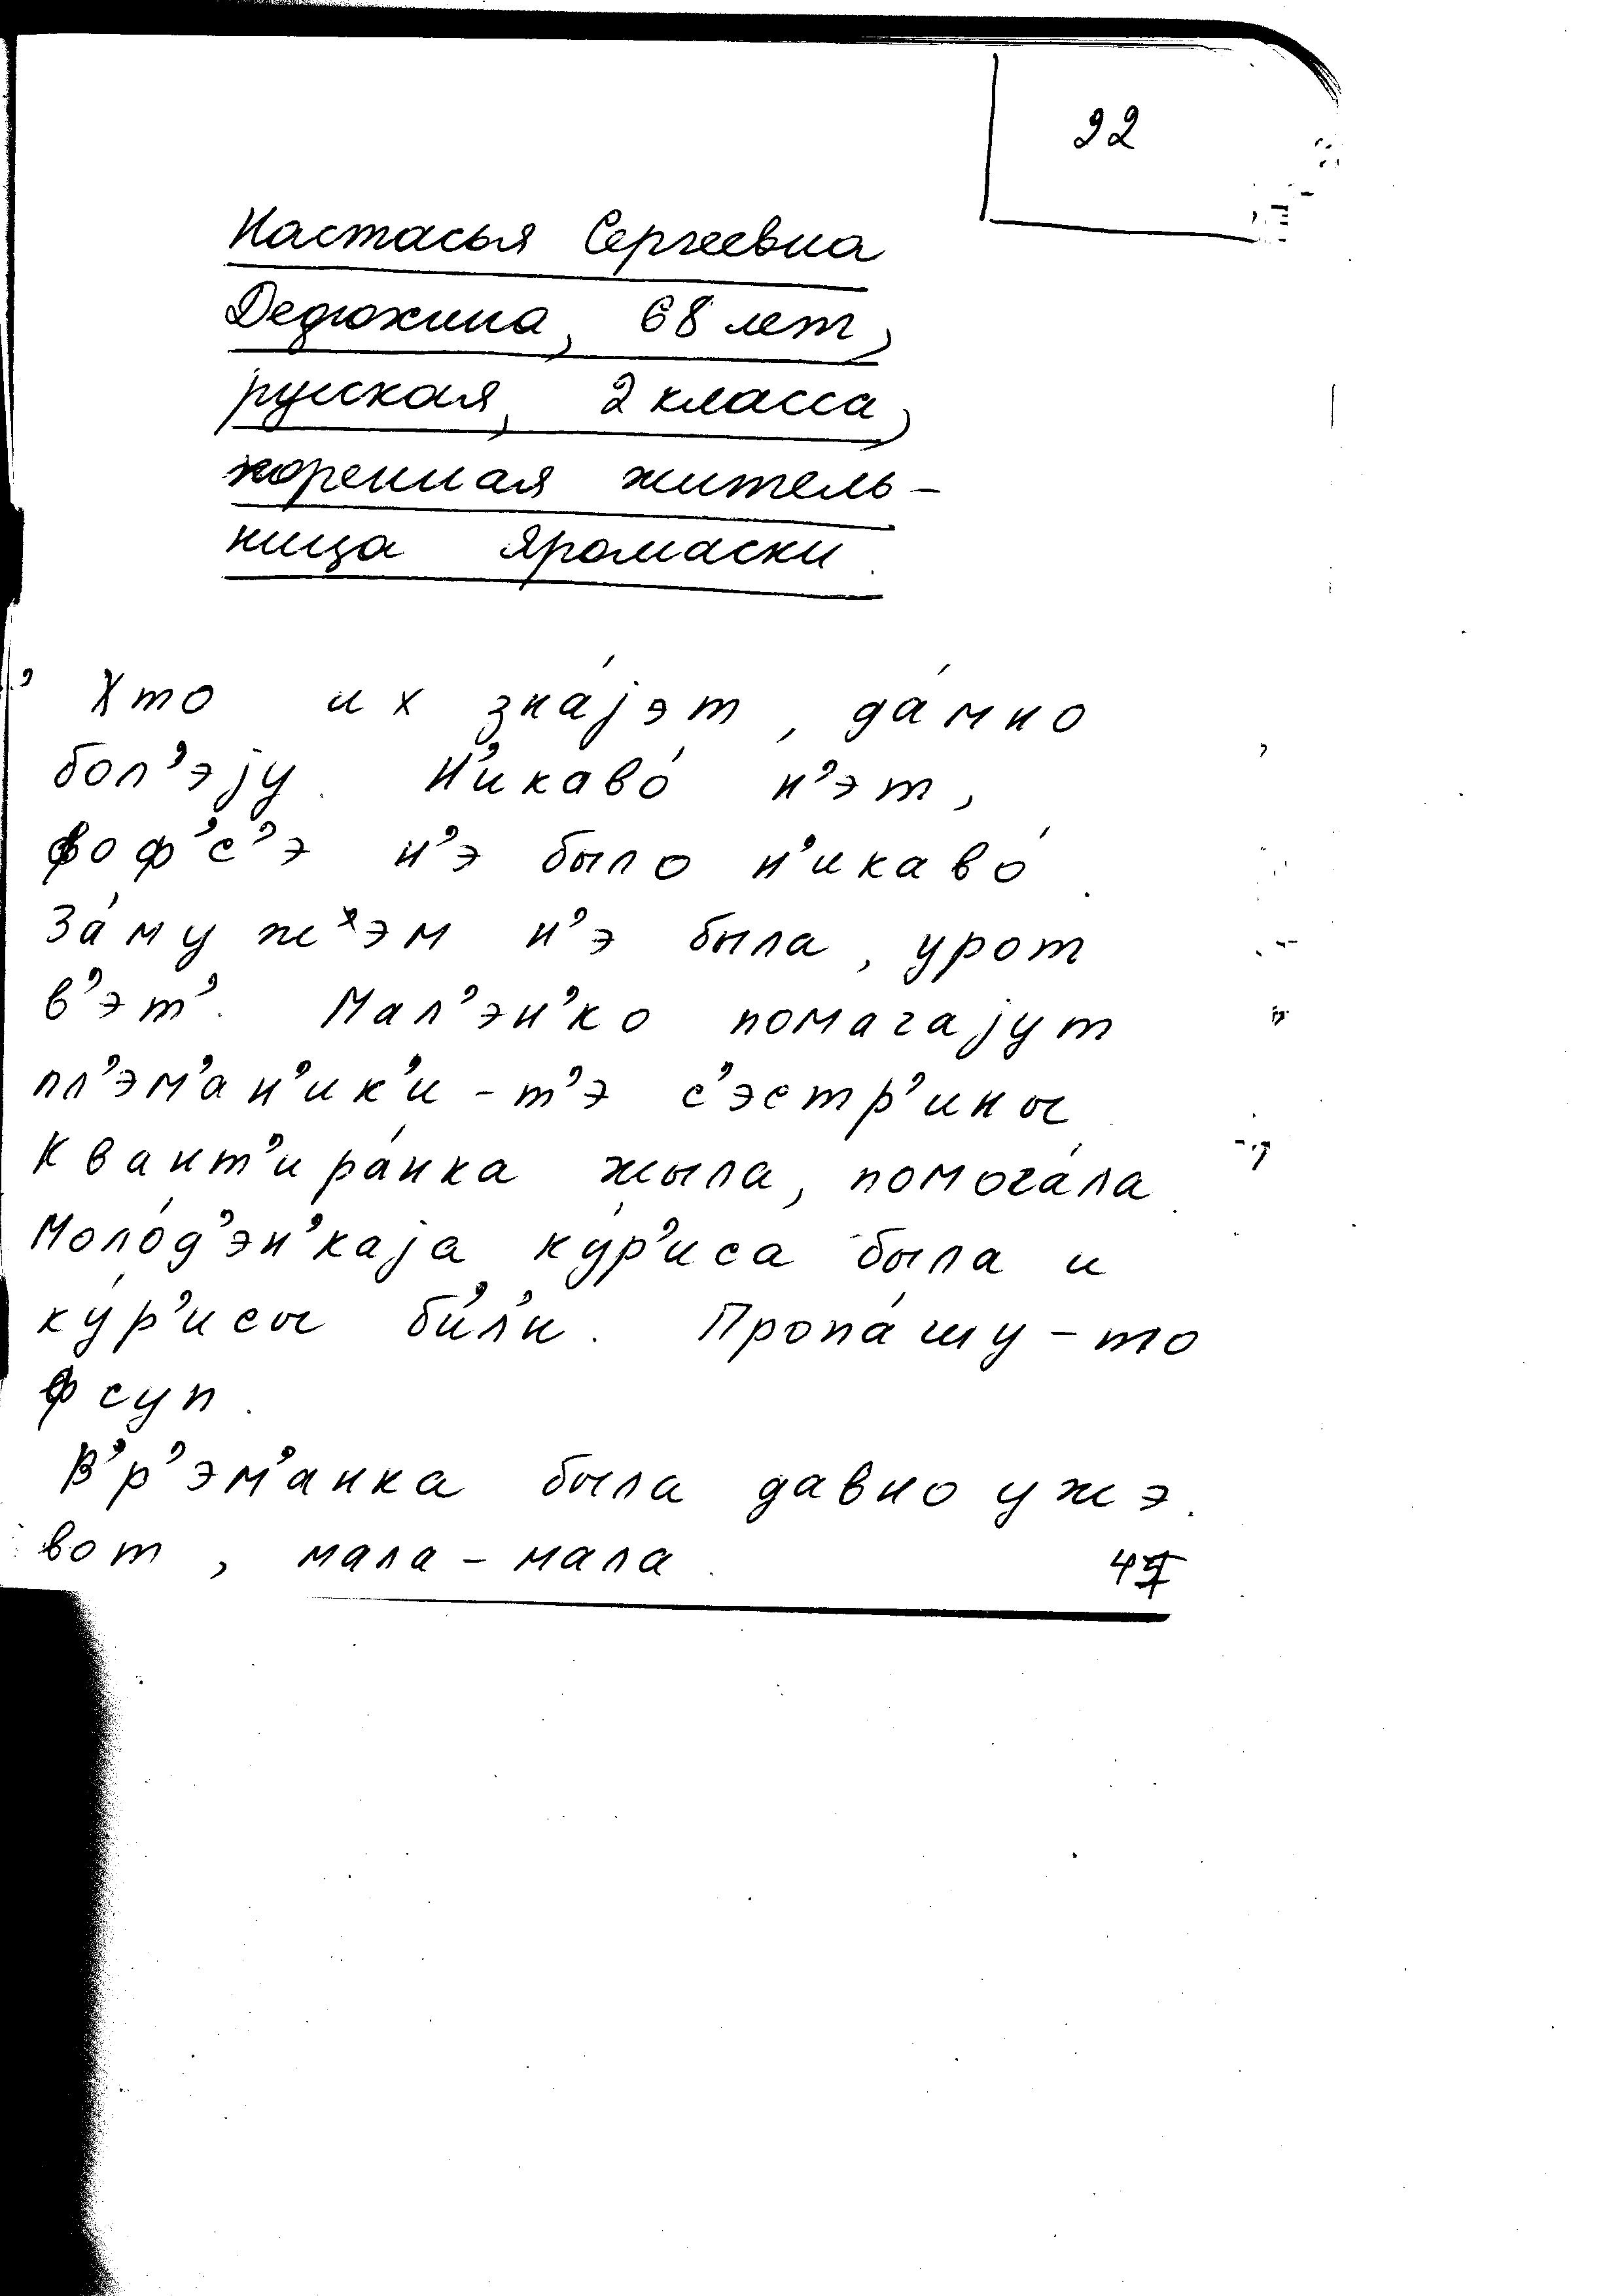 22
Настасья Сергеевна
Дедюхина, 68 лет,
русская, 2 класса,
коренная житель-
ница Яромаски.
Хто их зна́јэт, да́мно
бол’эју. Н’икаво́ н’эт,
фоф’с’э н’э было н’икаво́.
За́мужˣэм н’э была, урот
в’эт’. Мал’эн’ко помагајут
пл’эм’ан’ик’и-т’э с’эстр’ины.
Квант’ира́нка жыла, помога́ла.
Моло́д’эн’каја ку́р’иса была и
ку́р’исы би́л’и. Пропа́шу-то
ф суп.
В’р’эм’анка была давно ужэ.
вот, мала-мала.